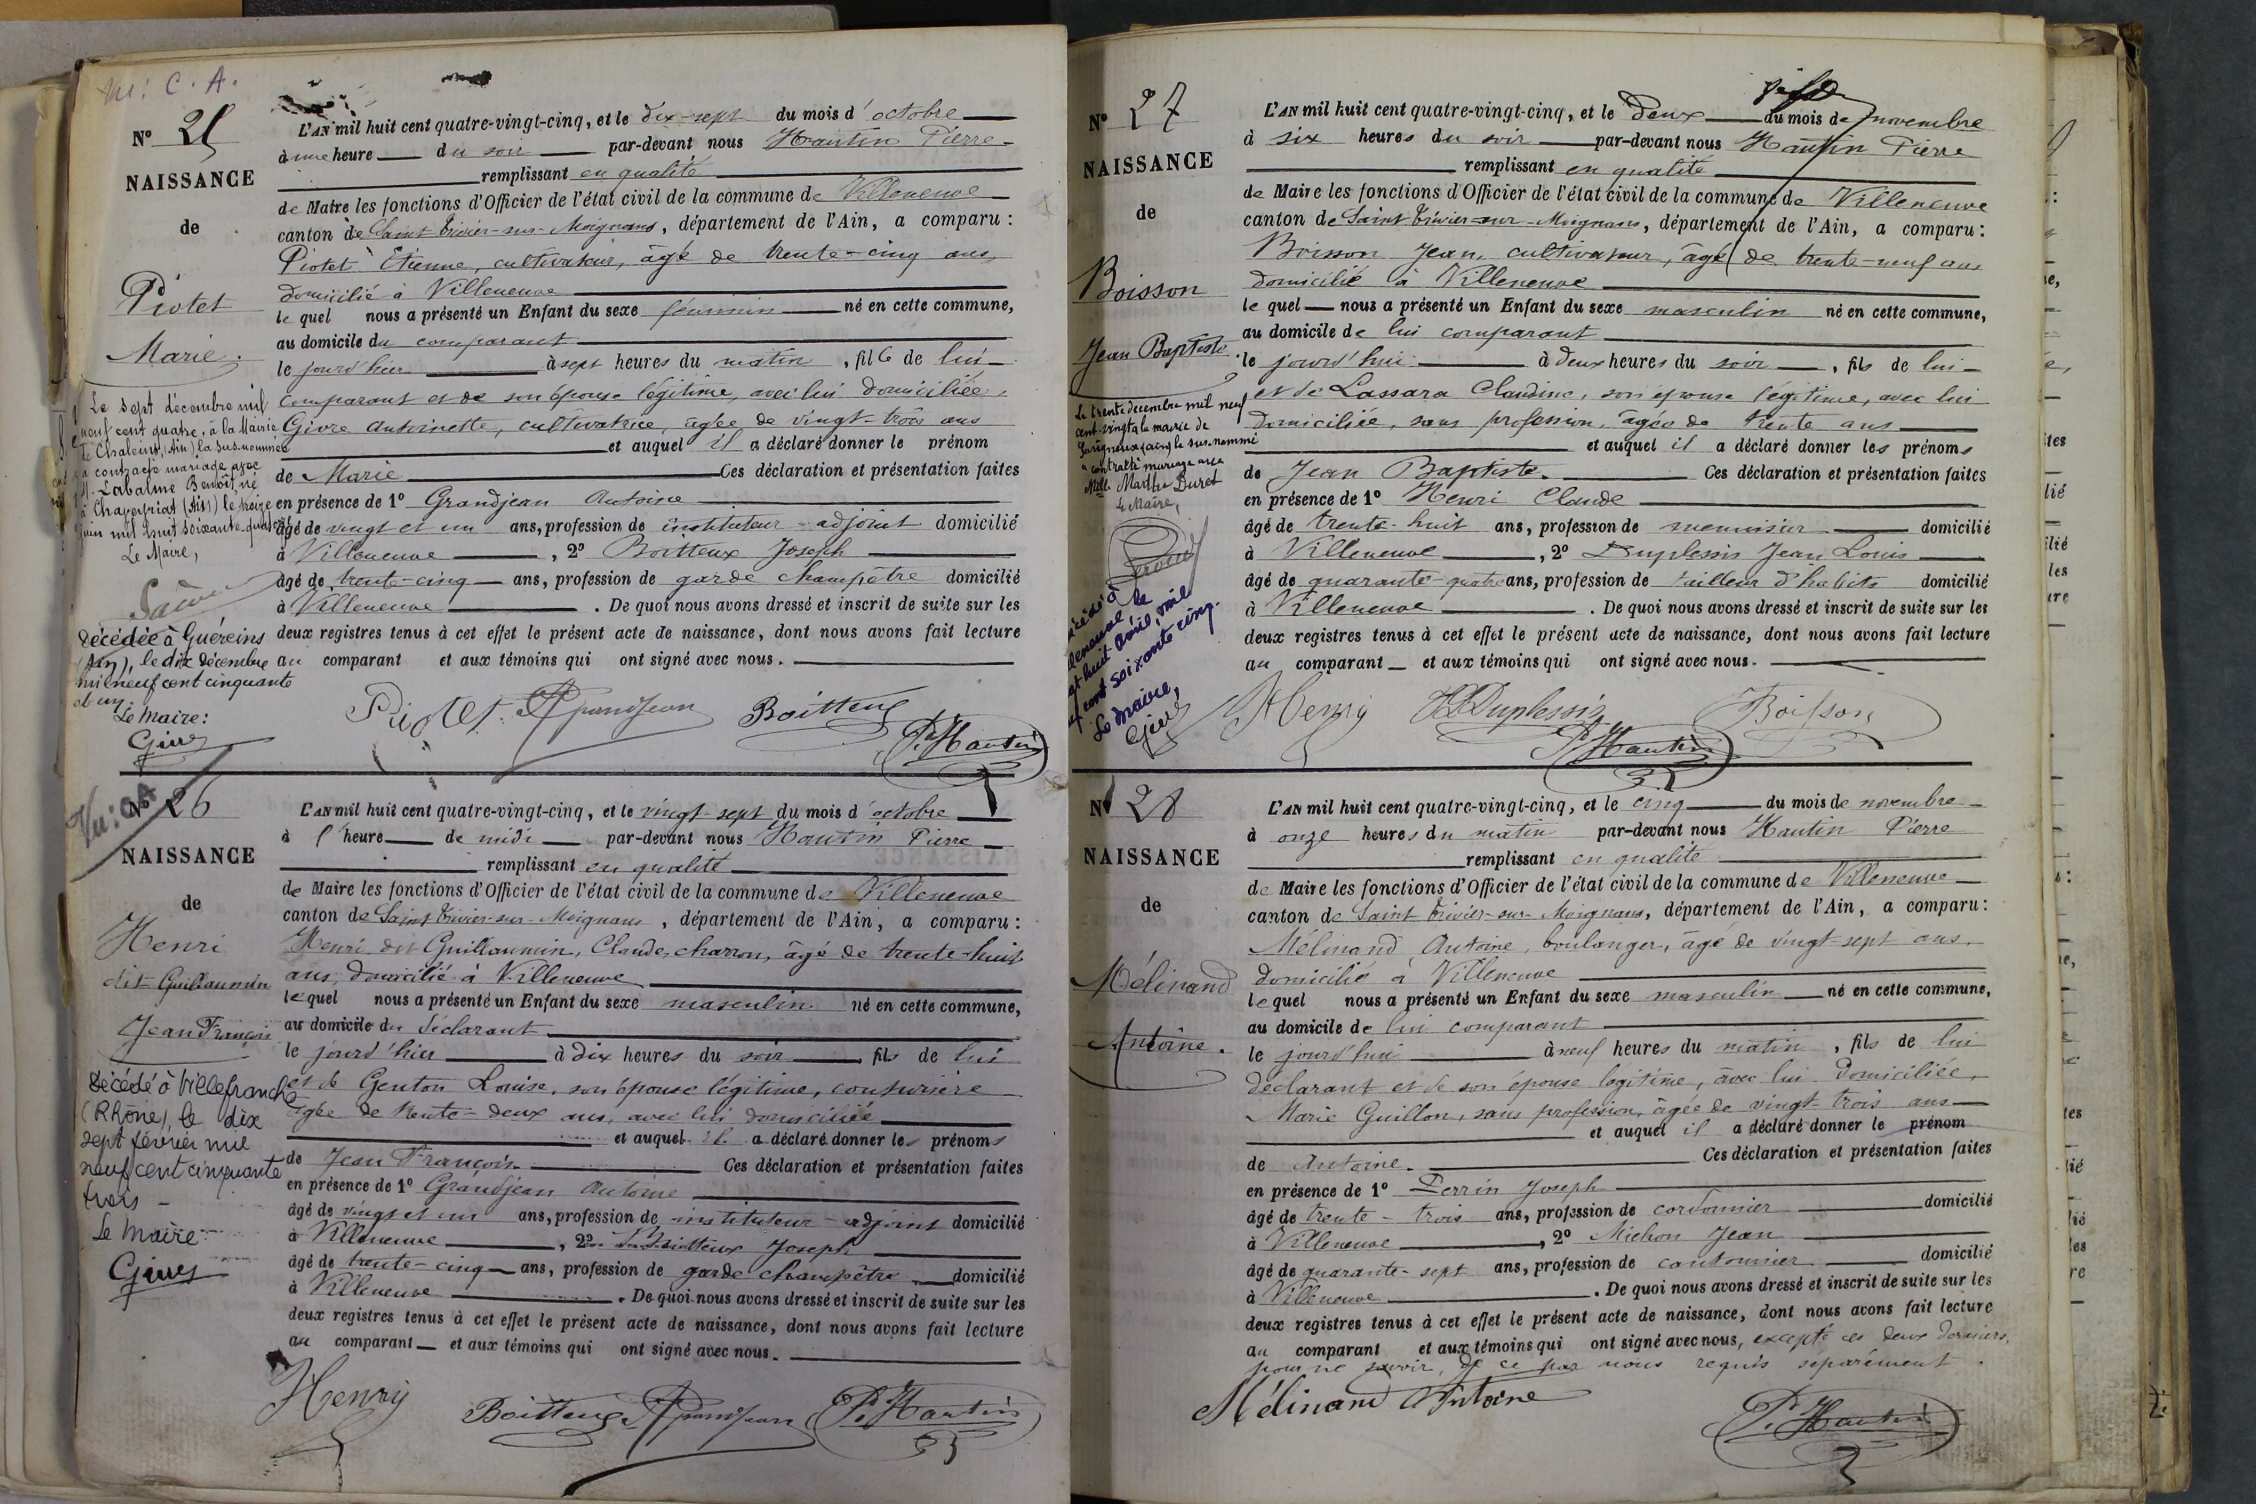 M : C. A.
N° 25
NAISSANCE
de
Piotet
Marie.
Le sept décembre mil
neuf cent quatre, à la Mairie
de Chaleins, (Ain) la sus-nommée
a contracté mariage avec
M. Labalme Benoît, né
à Chaneyriat (Ain) le treize
juin mil huit soixante-quatorze
Le Maire,
décédée à Guéreins
(Ain), le dix décembre
mil neuf cent cinquante
et un
Le Maire :
L'AN mil huit cent quatre-vingt-cinq, et le dix-sept du mois d'octobre
à une heure du soir par-devant nous Hautin Pierre
remplissant en qualité
de Maire les fonctions d'Officier de l'état civil de la commune de Villeneuve
canton de Saint Trivier-sur-Moignans, département de l'Ain, a comparu :
Piotet Etienne, cultivateur, âgé de trente-cinq ans,
domicilié à Villeneuve
lequel nous a présenté un Enfant du sexe féminin né en cette commune,
au domicile du comparant
le jourd'hier à sept heures du matin, fille de lui
comparant et de son épouse légitime, avec lui domiciliée,
Givre Antoinette, cultivatrice, âgée de vingt-trois ans
et auquel il a déclaré donner le prénom
de Marie Ces déclaration et présentation faites
en présence de 1° Grandjean Antoine
âgé de vingt et un ans, profession de instituteur-adjoint domicilié
à Villeneuve, 2° Boitteux Joseph
âgé de trente-cinq ans, profession de garde champêtre domicilié
à Villeneuve. De quoi nous avons dressé et inscrit de suite sur les
deux registres tenus à cet effet le présent acte de naissance, dont nous avons fait lecture
au comparant et aux témoins qui ont signé avec nous.
Piotet Grandjean Boitteux
P. Hautin
Vu : CA
N° 26
NAISSANCE
de
Henri
dit Guillaumin
Jean François
Décédé à Villefranche
(Rhône), le dix
sept février mil
neuf cent cinquante
trois -
Le Maire
L'AN mil huit cent quatre-vingt-cinq, et le vingt-sept du mois d'octobre
à l'heure de midi par-devant nous Hautin Pierre
remplissant en qualité
de Maire les fonctions d'Officier de l'état civil de la commune de Villeneuve
canton de Saint Trivier-sur-Moignans, département de l'Ain, a comparu :
Henri dit Guillaumin, Claude, charron, âgé de trente-huit
ans, domicilié à Villeneuve
lequel nous a présenté un Enfant du sexe masculin né en cette commune,
au domicile du déclarant
le jourd'hier à dix heures du soir, fils de lui
et de Genton Louise, son épouse légitime, couturière
âgée de trente-deux ans, avec lui domiciliée
et auquel il a déclaré donner les prénoms
de Jean François. Ces déclaration et présentation faites
en présence de 1° Grandjean Antoine
âgé de vingt et un ans, profession de instituteur-adjoint domicilié
à Villeneuve, 2° Boitteux Joseph
âgé de trente-cinq ans, profession de garde champêtre domicilié
à Villeneuve. De quoi nous avons dressé et inscrit de suite sur les
deux registres tenus à cet effet le présent acte de naissance, dont nous avons fait lecture
au comparant et aux témoins qui ont signé avec nous.
Henry Boitteux Grandjean P. Hautin
N° 27
NAISSANCE
de
Boisson
Jean Baptiste.
Le trente décembre mil neuf
cent-vingt à la mairie de
Savigneux (ain) le sus-nommé
a contracté mariage avec
Mlle Marthe Buret
Le Maire,
décédé à
Villeneuve le
vingt huit Avril, mil
neuf cent soixante cinq.
Le Maire,
L'AN mil huit cent quatre-vingt-cinq, et le deux du mois de novembre
à six heures du soir par-devant nous Hautin Pierre
remplissant en qualité
de Maire les fonctions d'Officier de l'état civil de la commune de Villeneuve
canton de Saint Trivier-sur-Moignans, département de l'Ain, a comparu :
Boisson Jean, cultivateur, âgé de trente-neuf ans
domicilié à Villeneuve
lequel nous a présenté un Enfant du sexe masculin né en cette commune,
au domicile de lui comparant
le jourd'hui à deux heures du soir, fils de lui
et de Lassara Claudine, son épouse légitime, avec lui
domiciliée, sans profession, âgée de trente ans
et auquel il a déclaré donner les prénoms
de Jean Baptiste. Ces déclaration et présentation faites
en présence de 1° Henri Claude
âgé de trente-huit ans, profession de menuisier domicilié
à Villeneuve, 2° Duplessis Jean Louis
âgé de quarante-quatre ans, profession de tailleur d'habits domicilié
à Villeneuve. De quoi nous avons dressé et inscrit de suite sur les
deux registres tenus à cet effet le présent acte de naissance, dont nous avons fait lecture
au comparant et aux témoins qui ont signé avec nous.
Henry Duplessis Boisson
P. Hautin
N° 28
NAISSANCE
de
Mélinand
Antoine.
L'AN mil huit cent quatre-vingt-cinq, et le cinq du mois de novembre
à onze heures du matin par-devant nous Hautin Pierre
remplissant en qualité
de Maire les fonctions d'Officier de l'état civil de la commune de Villeneuve
canton de Saint Trivier-sur-Moignans, département de l'Ain, a comparu :
Mélinand Antoine, boulanger, âgé de vingt-sept ans,
domicilié à Villeneuve
lequel nous a présenté un Enfant du sexe masculin né en cette commune,
au domicile de lui comparant
le jourd'hui à neuf heures du matin, fils de lui
déclarant et de son épouse légitime, avec lui domiciliée,
Marie Guillon, sans profession, âgée de vingt-trois ans
et auquel il a déclaré donner le prénom
de Antoine. Ces déclaration et présentation faites
en présence de 1° Perrin Joseph
âgé de trente-trois ans, profession de cordonnier domicilié
à Villeneuve, 2° Michon Jean
âgé de quarante-sept ans, profession de cantonnier domicilié
à Villeneuve. De quoi nous avons dressé et inscrit de suite sur les
deux registres tenus à cet effet le présent acte de naissance, dont nous avons fait lecture
au comparant et aux témoins qui ont signé avec nous, excepté ces deux derniers,
pour ne savoir, de ce par nous requis séparément.
Mélinand Antoine
P. Hautin